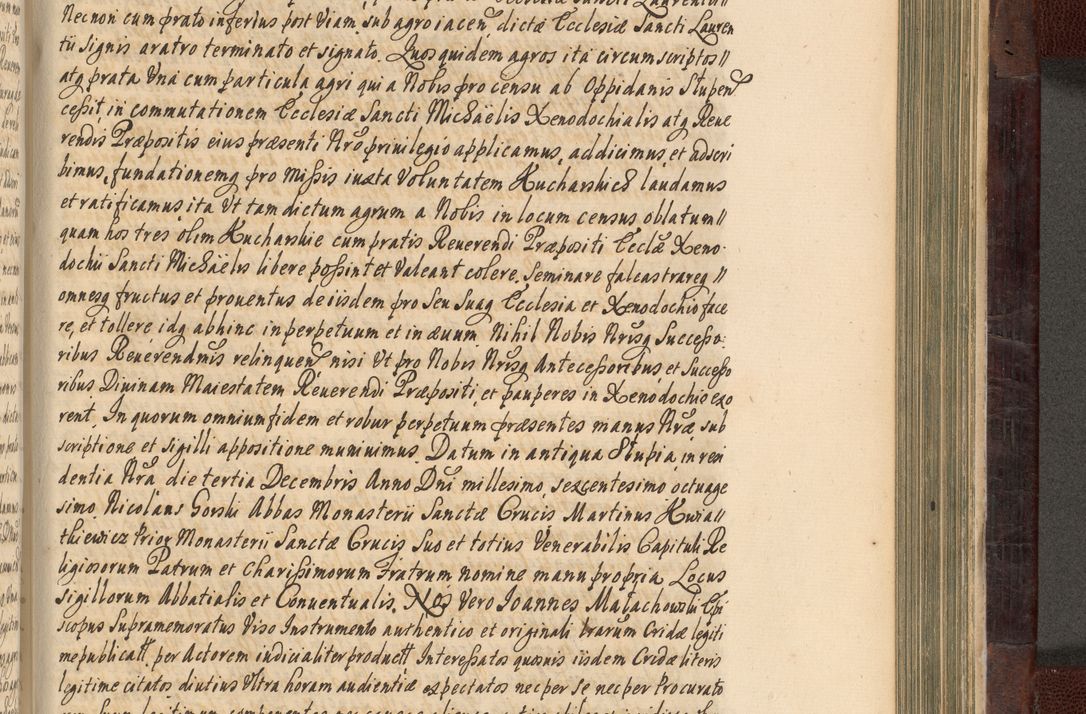 Necnon cum prato inferius post Viam sub agro iacen dictæ Ecclesiæ Sancti Lauren
tii signis aratro terminato et signato. Quos quidem agros ita circumscriptos //
atq prata Una cum particula agri qui a Nobis pro censu ab Oppidanis Stupen
cessit in commutationem Ecclesiæ Sancti Michaëlis Xenodochialis atq Reue
rendis Præpositis eius præsenti Nro priuilegio applicamus, addicimus et adscri
bimus, fundationemq pro Missis iuxta Voluntatem Kucharskich laudamus
et ratificamus, ita Ut tam dictum agrum a Nobis in locum census oblatum //
quam hos tres olim Kucharskie cum pratis Reuerendi Præpositi Ecclæ Xeno-
dochii Sancti Michaëlis libere possint et Valeant colere, seminare falcastrareq //
omnesq fructus et prouentus de iisdem pro Seu Suaq Ecclesia et Xenodochio face
re, et tollere idq abhinc in perpetuum et in æuum Nihil Nobis Nrisq Successo-
ribus Reuerendmis relinquen nisi Ut pro Nobis Nrisq Antecessoribus et Successo
ribus Diuinam Maiestatem Reuerendi Præpositi, et pauperes in Xenodochio exo
rent. In quorum omnium fidem et robur perpetuum præsentes manus Nræ sub
scriptione et sigilli appositione muniuimus. Datum in antiqua Stupia, in resi
dentia Nra die tertia Decembris Anno Dni millesimo, sexcentesimo octuage
simo Nicolaus Gorski Abbas Monasterii Sanctæ Crucis Martinus Kwia //
thiewicz Prior Monasterii Sanctæ Crucis Suo et totius Venerabilis Capituli Re
ligiosorum Patrum et Charissimorum Fratrum nomine manu propria Locus
sigillorum Abbatialis et Conuentualis. Nos Vero Ioannes Małachowski Epi
scopus Supramemoratus Viso Instrumento authentico et originali trarum Cridæ legiti
me publicatt per Actorem iudicialiter productt Interessatos quosuis iisdem Cridæ literis
legitime citatos diutius Ultra horam audientiæ expectatos nec per se nec per Procurato